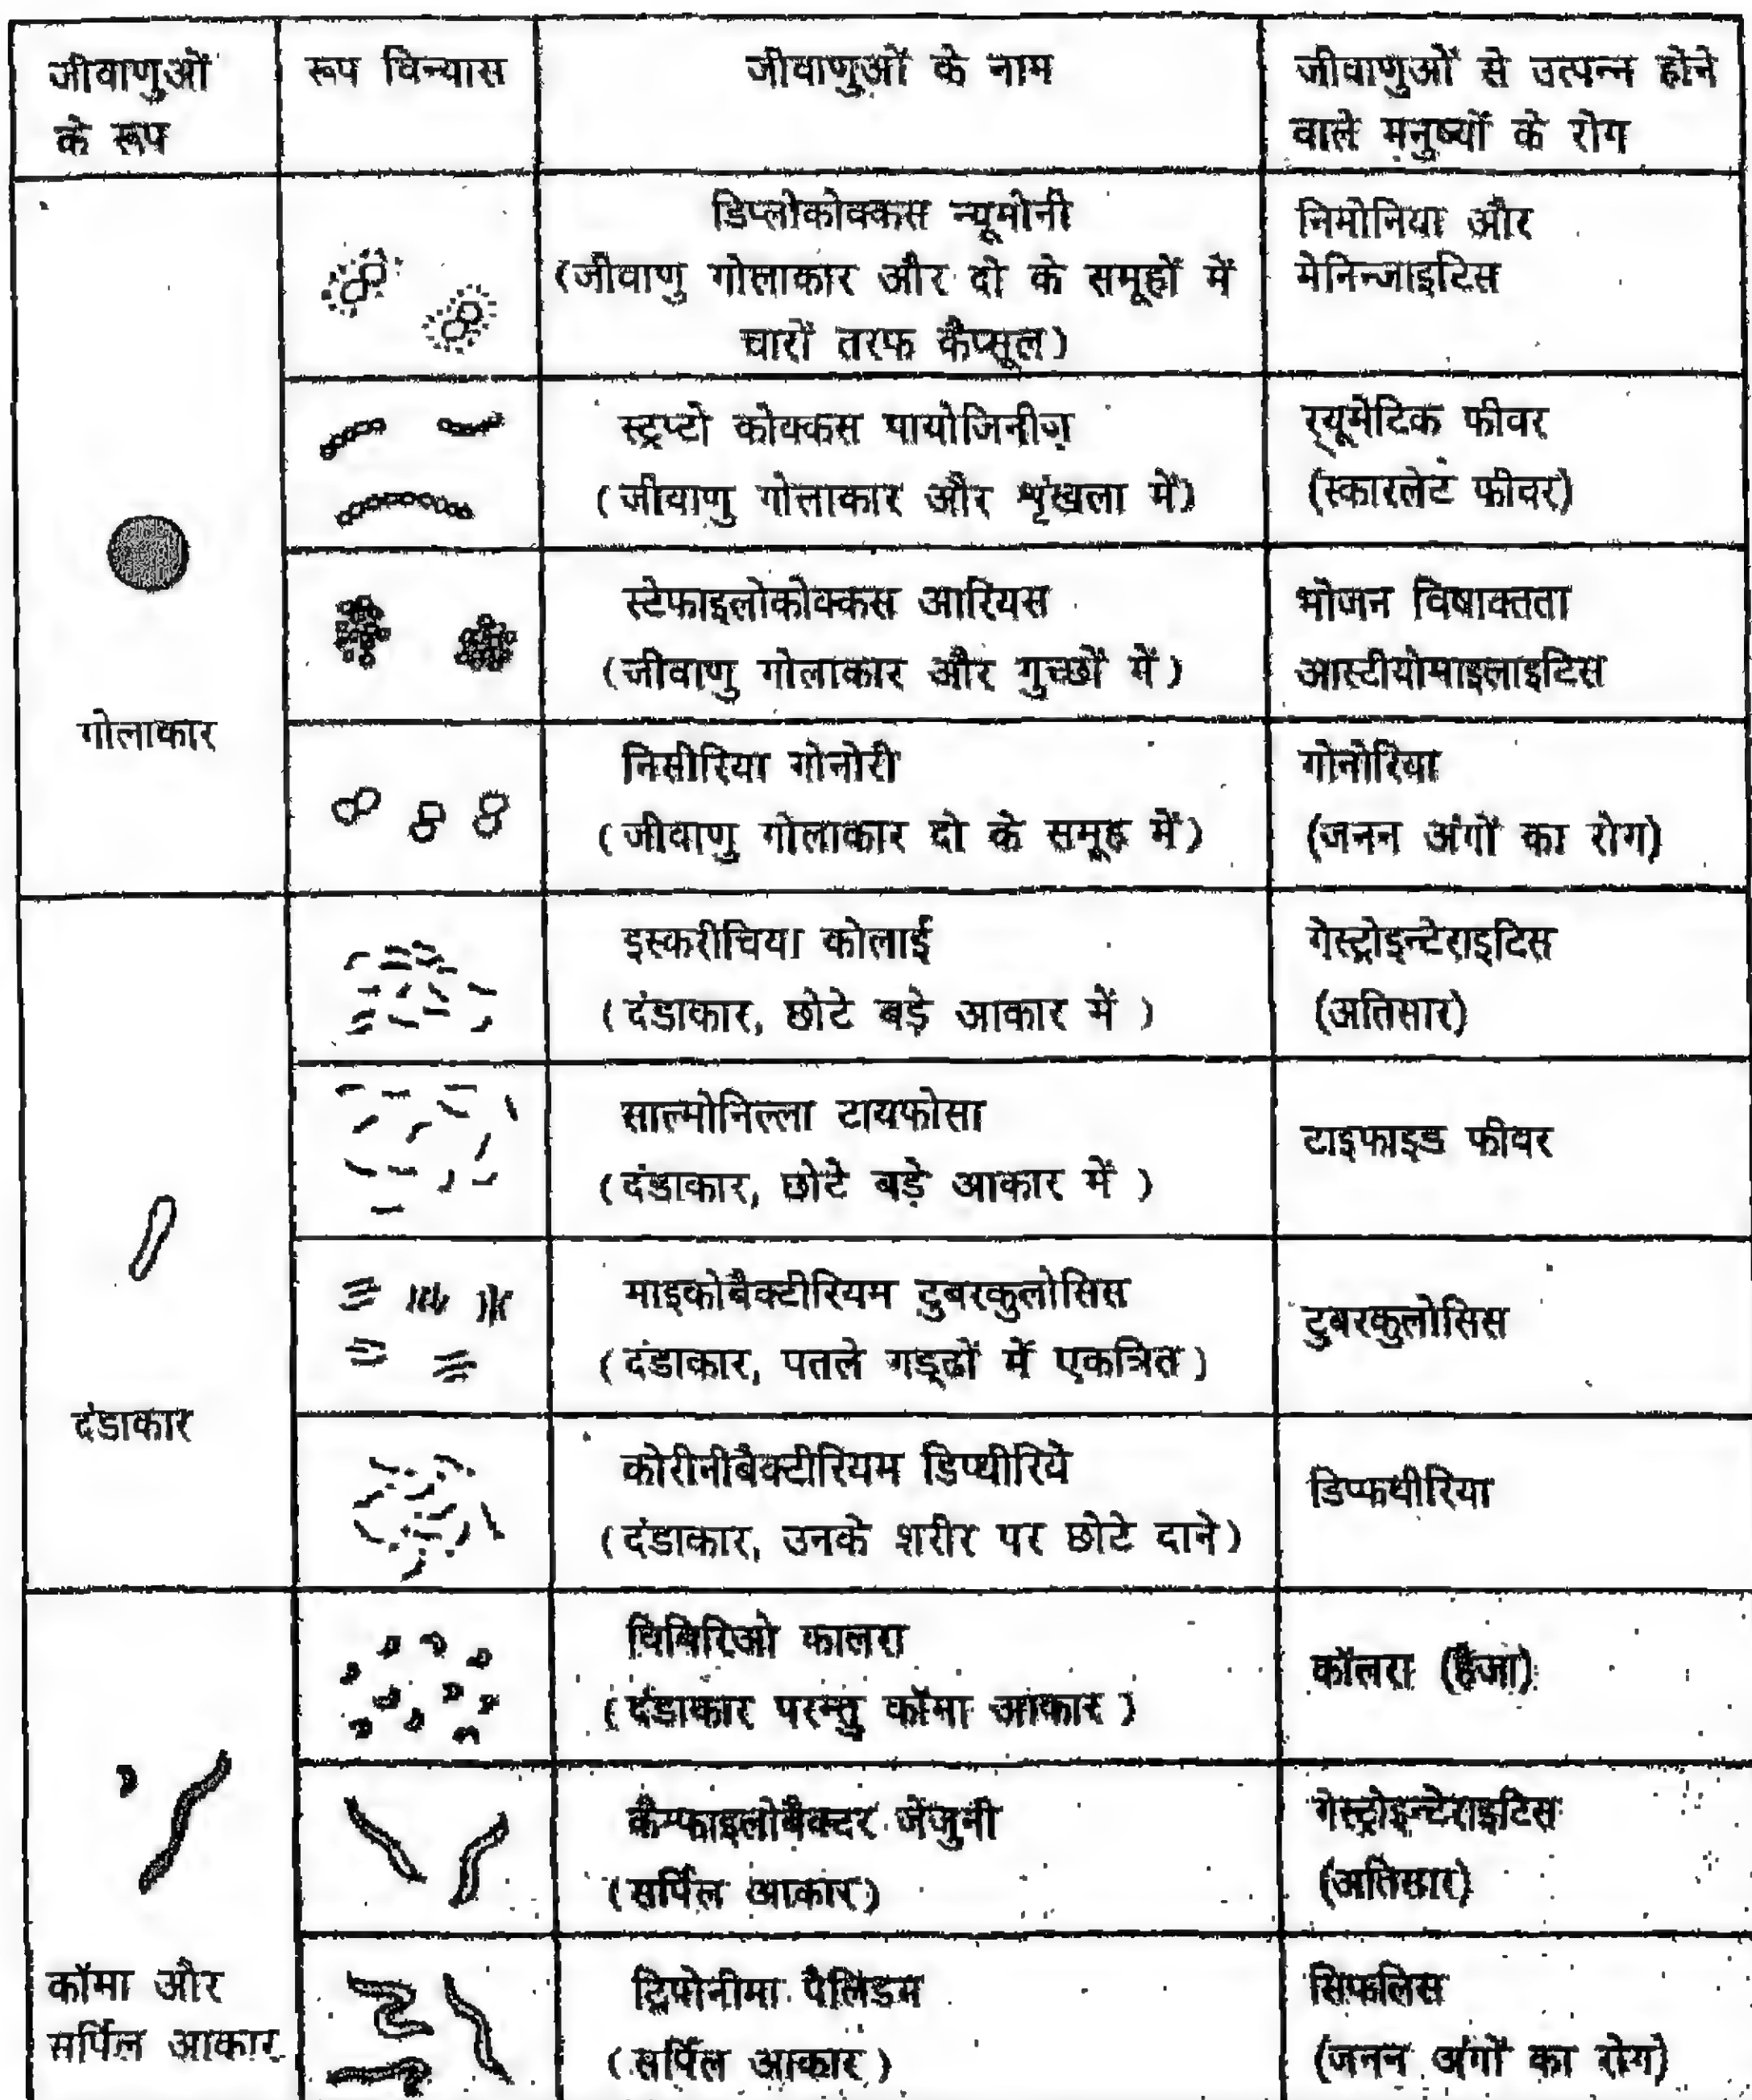 जीवाणुओं
के रूप
रूप विन्यास
जीवाणुओं के नाम
जीवाणुओं से उत्पन्न होने
वाले मनुष्यों के रोग
गोलाकार
डिप्लोकोक्कस न्यूमोनी
(जीवाणु गोलाकार और दो के समूहों में
चारों तरफ कैप्सूल)
निमोनिया और
मेनिन्जाइटिस
स्ट्रप्टो कोक्कस पायोजिनीज़
(जीवाणु गोलाकार और शृंखला में)
र्‍यूमेटिक फीवर
(स्कारलेट फीवर)
स्टेफाइलोकोक्कस आरियस
(जीवाणु गोलाकार और गुच्छों में)
भोजन विषाक्तता
आस्टीयोमाइलाइटिस
निसीरिया गोनोरी
(जीवाणु गोलाकार दो के समूह में)
गोनोरिया
(जनन अंगों का रोग)
दंडाकार
इस्करीचिया कोलाई
(दंडाकार, छोटे बड़े आकार में)
गेस्ट्रोइन्टेराइटिस
(अतिसार)
साल्मोनिल्ला टायफोसा
(दंडाकार, छोटे बड़े आकार में)
टाइफाइड फीवर
माइकोबैक्टीरियम टुबरकुलोसिस
(दंडाकार, पतले गड्ढों में एकत्रित)
टुबरकुलोसिस
कोरीनीबैक्टीरियम डिप्थीरिये
(दंडाकार, उनके शरीर पर छोटे दाने)
डिप्फथीरिया
कॉमा और
सर्पिल आकार
विबिरिओ कालरा
(दंडाकार परन्तु कॉमा आकार)
कॉलरा (हैजा)
कैम्फाइलोबैक्टर जेजुनी
(सर्पिल आकार)
गेस्ट्रोइन्टेराइटिस
(अतिसार)
ट्रिपोनीमा पैलिडम
(सर्पिल आकार)
सिफलिस
(जनन अंगों का रोग)